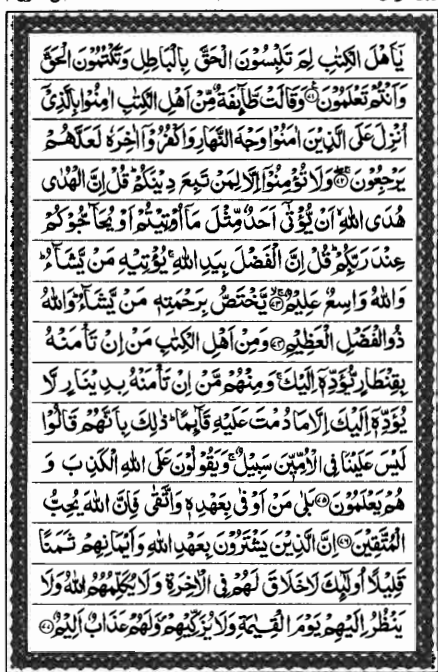 يٰۤاَهْلَ الْكِتٰبِ لِمَ تَلْبِسُوْنَ الْحَقَّ بِالْبَاطِلِ وَتَكْتُمُوْنَ الْحَقَّ
وَاَنْتُمْ تَعْلَمُوْنَ ﴿۷۱﴾ وَقَالَتْ طَّآئِفَةٌ مِّنْ اَهْلِ الْكِتٰبِ اٰمِنُوْا بِالَّذِيْۤ
اُنْزِلَ عَلَى الَّذِيْنَ اٰمَنُوْا وَجْهَ النَّهَارِ وَاكْفُرُوْۤا اٰخِرَهٗ لَعَلَّهُمْ
يَرْجِعُوْنَ ﴿۷۲﴾ وَلَا تُؤْمِنُوْۤا اِلَّا لِمَنْ تَبِعَ دِيْنَكُمْ ؕ قُلْ اِنَّ الْهُدٰى
هُدَى اللّٰهِ ۙ اَنْ يُّؤْتٰۤى اَحَدٌ مِّثْلَ مَاۤ اُوْتِيْتُمْ اَوْ يُحَآجُّوْكُمْ
عِنْدَ رَبِّكُمْ ؕ قُلْ اِنَّ الْفَضْلَ بِيَدِ اللّٰهِ ۚ يُؤْتِيْهِ مَنْ يَّشَآءُ ؕ
وَاللّٰهُ وَاسِعٌ عَلِيْمٌ ﴿۷۳﴾ يَّخْتَصُّ بِرَحْمَتِهٖ مَنْ يَّشَآءُ ؕ وَاللّٰهُ
ذُو الْفَضْلِ الْعَظِيْمِ ﴿۷۴﴾ وَمِنْ اَهْلِ الْكِتٰبِ مَنْ اِنْ تَاْمَنْهُ
بِقِنْطَارٍ يُّؤَدِّهٖۤ اِلَيْكَ ۚ وَمِنْهُمْ مَّنْ اِنْ تَاْمَنْهُ بِدِيْنَارٍ لَّا
يُؤَدِّهٖۤ اِلَيْكَ اِلَّا مَا دُمْتَ عَلَيْهِ قَآئِمًا ؕ ذٰلِكَ بِاَنَّهُمْ قَالُوْا
لَيْسَ عَلَيْنَا فِى الْاُمِّيّٖنَ سَبِيْلٌ ۚ وَيَقُوْلُوْنَ عَلَى اللّٰهِ الْكَذِبَ وَ
هُمْ يَعْلَمُوْنَ ﴿۷۵﴾ بَلٰى مَنْ اَوْفٰى بِعَهْدِهٖ وَاتَّقٰى فَاِنَّ اللّٰهَ يُحِبُّ
الْمُتَّقِيْنَ ﴿۷۶﴾ اِنَّ الَّذِيْنَ يَشْتَرُوْنَ بِعَهْدِ اللّٰهِ وَاَيْمَانِهِمْ ثَمَنًا
قَلِيْلًا اُولٰٓئِكَ لَا خَلَاقَ لَهُمْ فِى الْاٰخِرَةِ وَلَا يُكَلِّمُهُمُ اللّٰهُ وَلَا
يَنْظُرُ اِلَيْهِمْ يَوْمَ الْقِيٰمَةِ وَلَا يُزَكِّيْهِمْ ۪ وَلَهُمْ عَذَابٌ اَلِيْمٌ ﴿۷۷﴾